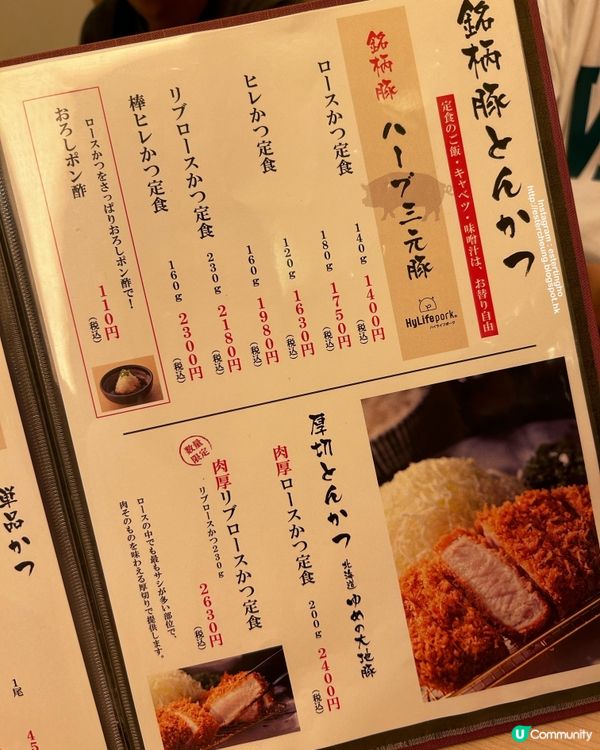 銘柄豚とんかつ
定食のご飯・キャベツ・味噌汁は、お替り自由
銘柄豚 ハーブ三元豚
HyLifepork
ハイライフポーク
ロースかつ定食
140g 1400円(税込)
180g 1750円(税込)
ヒレかつ定食
120g 1630円(税込)
160g 1980円(税込)
リブロースかつ定食
230g 2180円(税込)
棒ヒレかつ定食
160g 2300円(税込)
ロースかつをさっぱりおろしポン酢で!
おろしポン酢
110円(税込)
厚切とんかつ 北海道 ゆめの大地豚
肉厚ロースかつ定食 200g 2400円(税込)
数量限定
肉厚リブロースかつ定食
リブロースかつ230g 2630円(税込)
ロースの中でも最もサシが多い部位で、
肉そのものを味わえる厚切りで提供します。
単品かつ
1尾
45
Instagram: estercheungho
U Community